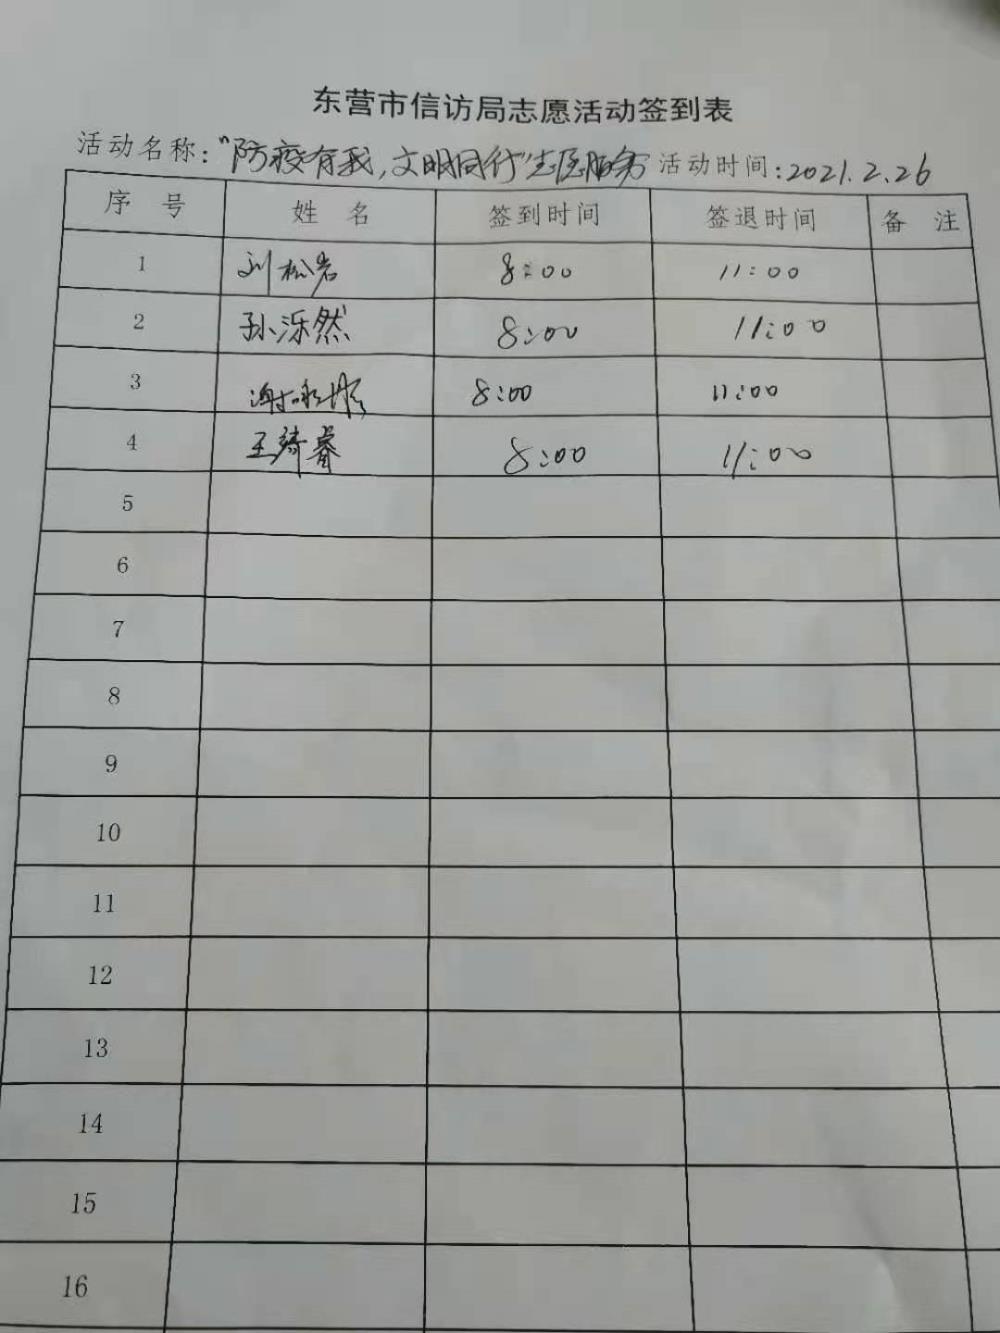 东营市信访局志愿活动签到表
活动名称:“防疫有我,文明同行”志愿服务 活动时间:2021.2.26
序 号 姓 名 签到时间 签退时间 备 注
1 刘松岩 8:00 11:00
2 孙泺然 8:00 11:00
3 8:00 11:00
4 王绮睿 8:00 11:00
5
6
7
8
9
10
11
12
13
14
15
16